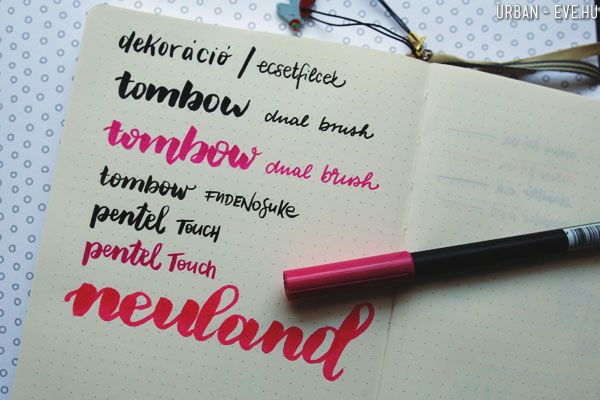 URBAN - EVE.HU
dekoráció / ecsetfilcek
tombow dual brush
tombow dual brush
tombow FUDENOSUKE
pentel TOUCH
pentel Touch
neuland